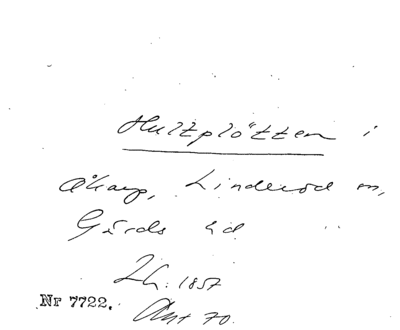 Hultplötten i
Åkarp, Linderöd sn,
Gärds hd
Lh. 1857
Nr 7722.
Akt 70.